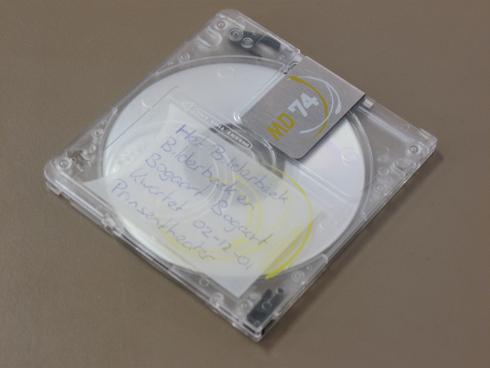 MD 74
Het Bilderbeek
Bilderbakker
Bogaart Bogaart
Kwartet 02-12-01
Prinsentheater